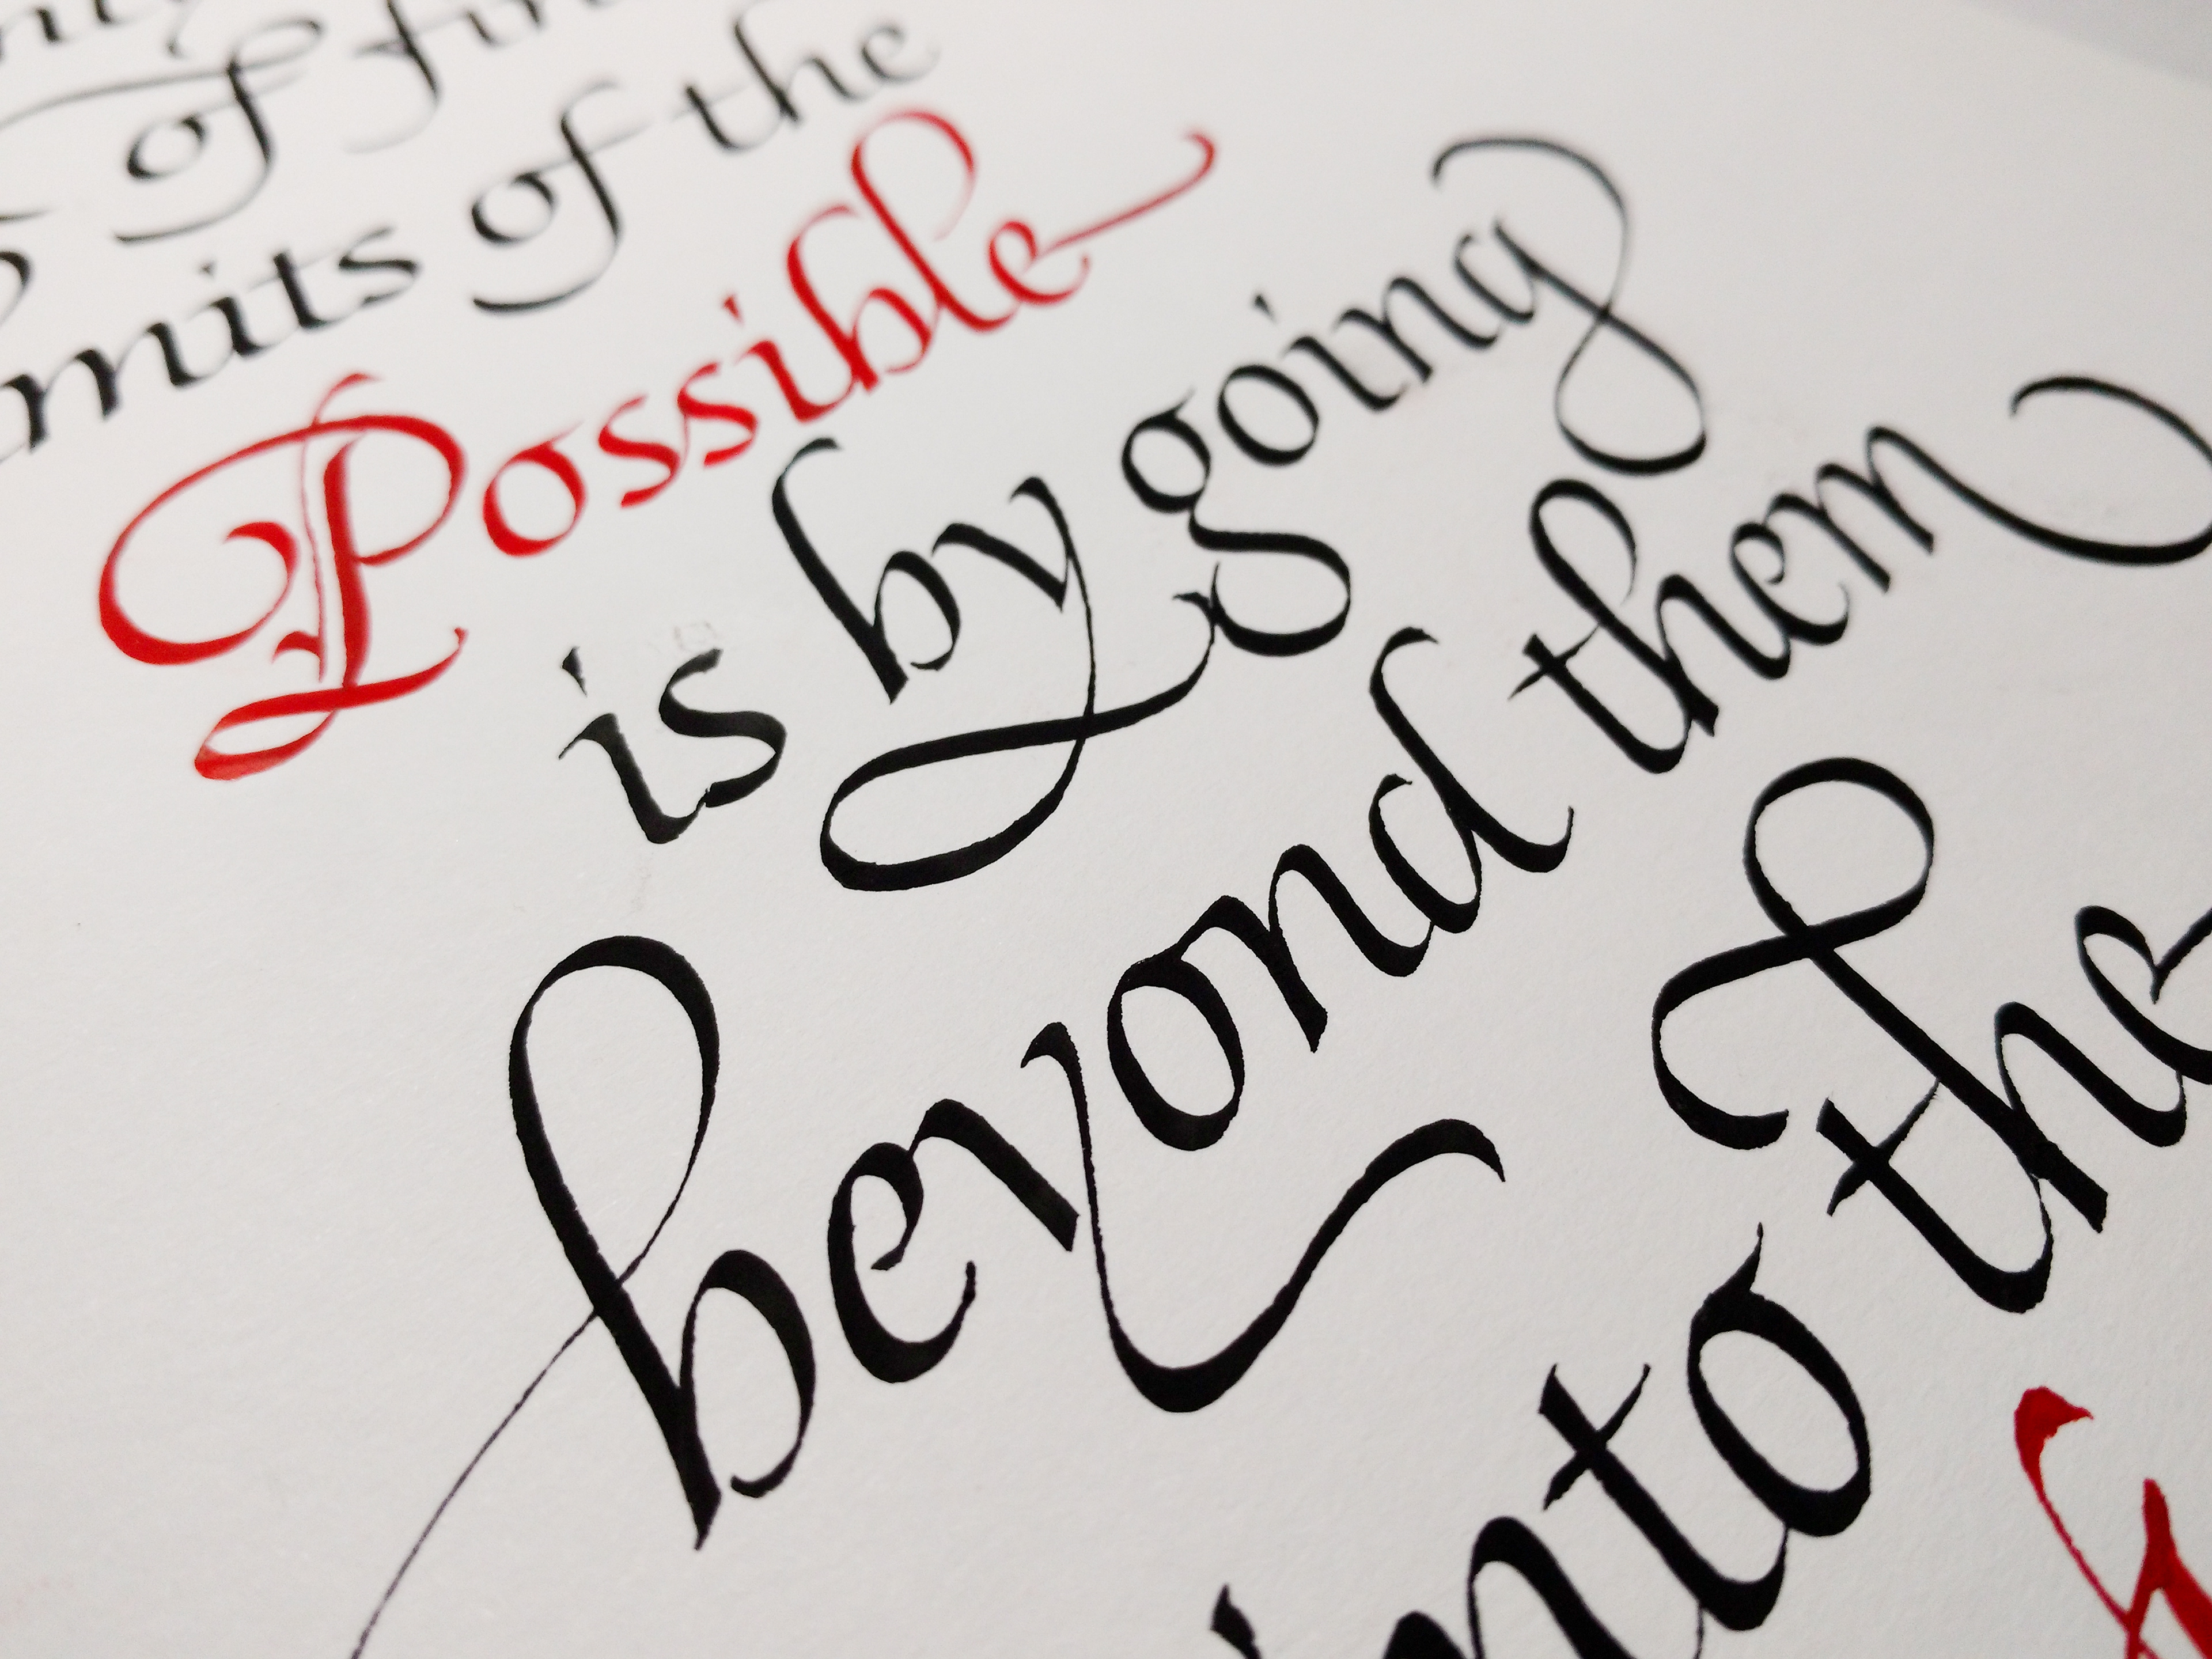 of
mits of the
Possible
is by going
beyond them
into the